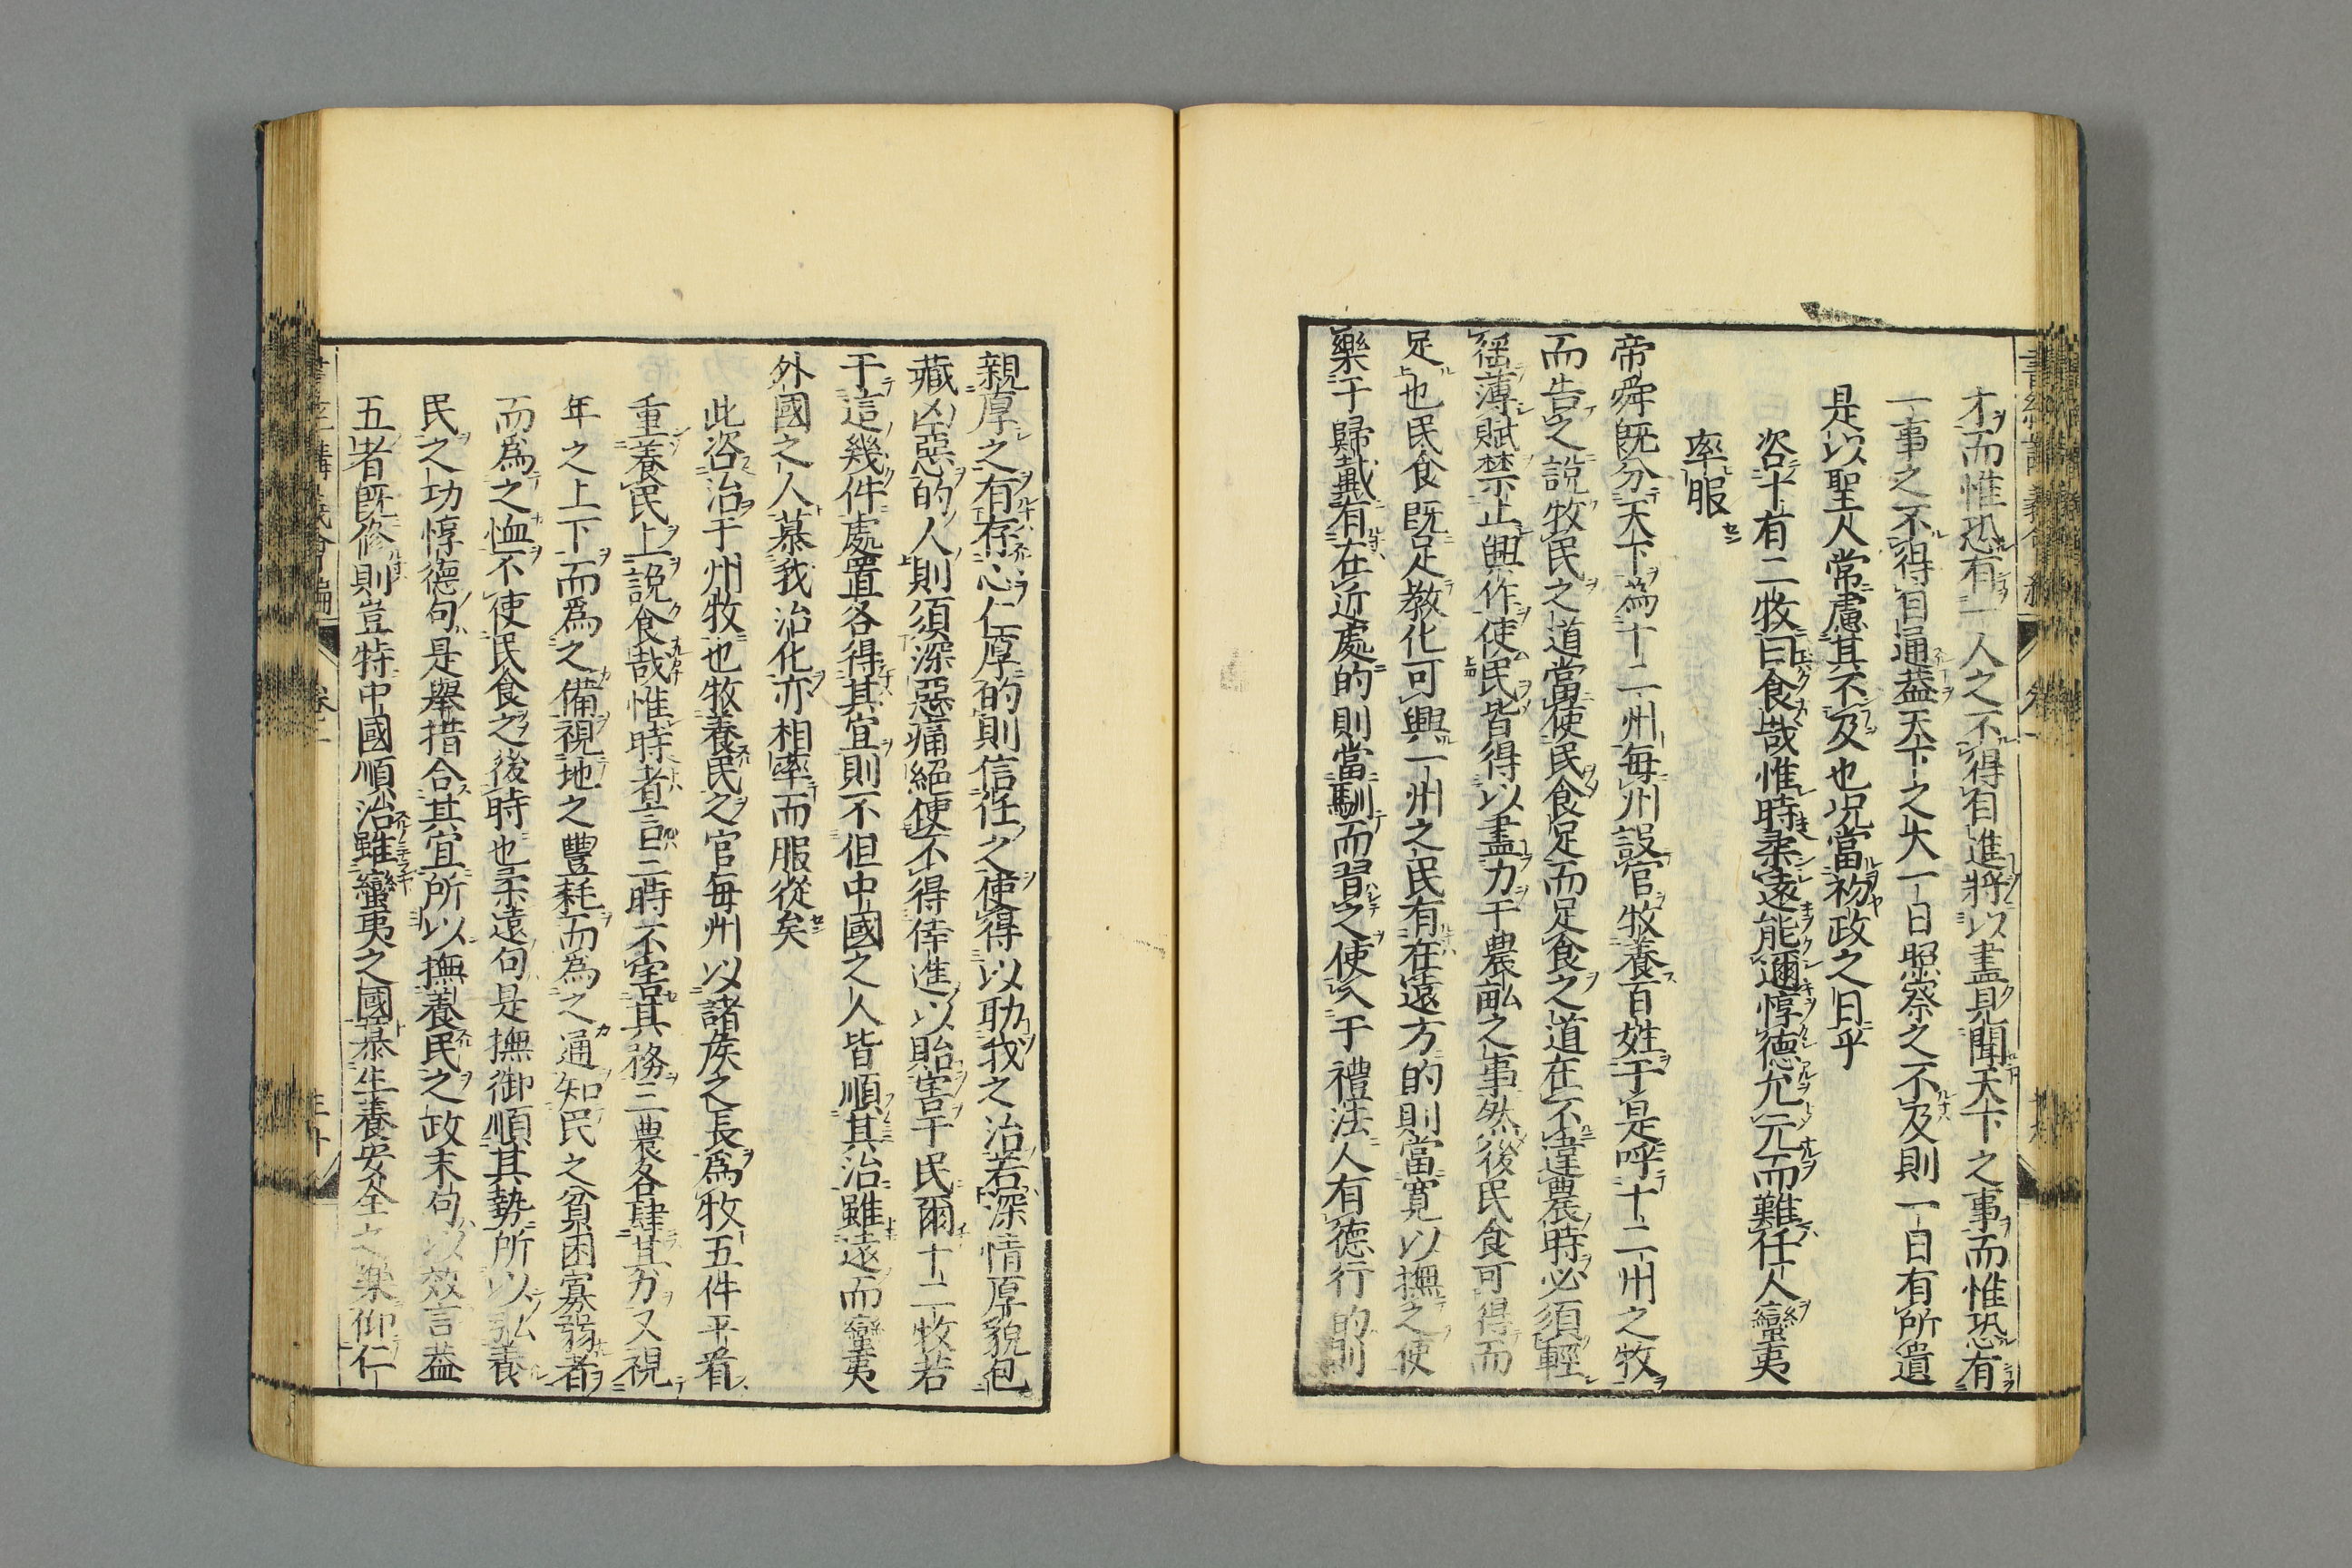 才而惟恐有一人之不得自進將以盡見聞天下之事而惟恐有
一事之不得自通葢天下之大一日照察之不及則一日有所遺
是以聖人常慮其不及也况當初政之日乎
咨十有二牧曰食哉惟時柔遠能邇惇德允元而難任人蠻夷
率服
帝舜既分天下爲十二州每州設官牧養百姓于是呼十二州之牧
而告之說牧民之道當使民食足而足食之道在不違農時必須輕
徭薄賦禁止興作使民皆得以盡力于農畝之事然後民食可得而
足也民食既足教化可興一州之民有在遠方的則當寛以撫之使
樂于歸戴有在近處的則當馴而習之使入于禮法人有德行的則
親厚之有存心仁厚的則信任之使得以助我之治若深情厚貌包
藏凶惡的人則須深惡痛絕使不得倖進以貽害于民爾十二牧若
于這幾件處置各得其宜則不但中國之人皆順其治雖遠而蠻夷
外國之人慕我治化亦相率而服從矣
此咨治于州牧也牧養民之官每州以諸侯之長爲牧五件平看
重養民上說食哉惟時者言三時不害其務三農各肆其力又視
年之上下而爲之備視地之豐耗而爲之通知民之貧困寡弱者
而爲之恤不使民食之後時也柔遠句是撫御順其勢所以弘養
民之功惇德句是舉措合其宜所以撫養民之政末句以效言葢
五者既修則豈特中國順治雖蠻夷之國慕生養安全之樂仰仁
書經講義會編
卷二
三十